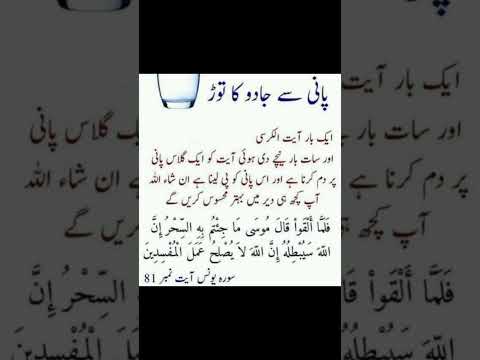 پانی سے جادو کا توڑ
ایک بار آیت الکرسی
اور سات بار نیچے دی ہوئی آیت کو ایک گلاس پانی
پر دم کرنا ہے اور اس پانی کو پی لینا ہے ان شاء اللہ
آپ کچھ ہی دیر میں بہتر محسوس کریں گے
فَلَمَّا أَلْقَوْاْ قَالَ مُوسَى مَا جِئْتُم بِهِ السِّحْرُ إِنَّ
اللّهَ سَيُبْطِلُهُ إِنَّ اللّهَ لاَ يُصْلِحُ عَمَلَ الْمُفْسِدِينَ
سورہ یونس آیت نمبر 81